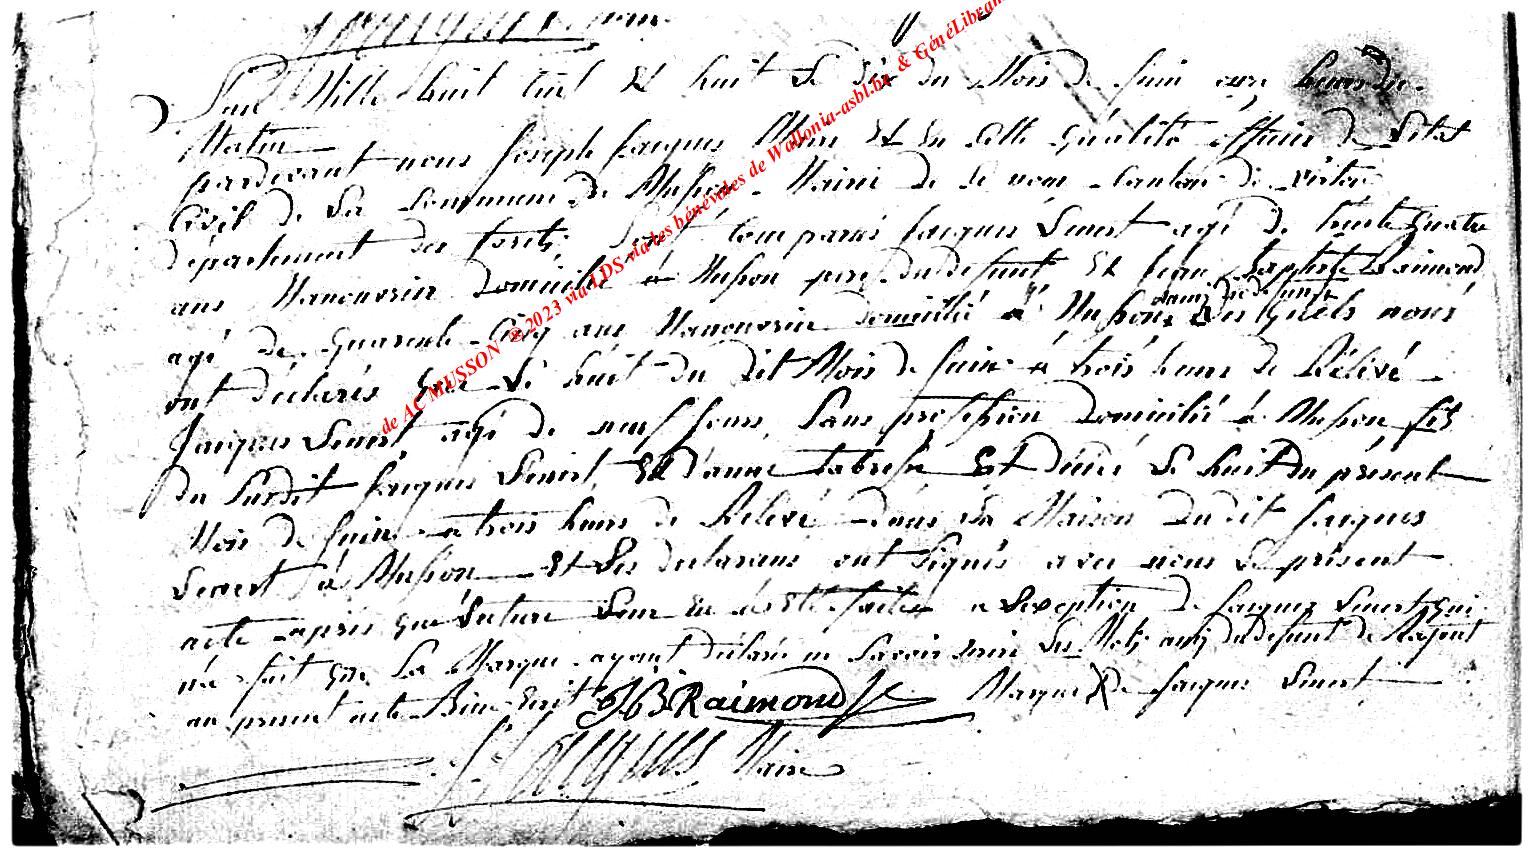 L'an Mille huit Cent Et huit Le dix du Mois de Juin onze heures du
Matin
pardevant nous Joseph Jacques Maire Et En Cette qualité officier de L'etat
Civil de La Commune de Musson Mairie de Ce nom Canton de virton
département des forets Sont Comparus JacquesEvert agé de trente quatre
ans Manouvrier Domicilié à Musson pere du defunt Et Jean Baptiste Raimond
agé de quarente Cinq ans Manouvrier Domicilié à Musson amis du defunt Les quels nous
ont déclarés que Le huit du dit Mois de Juin à trois heures de Rélévé
Jacques Evert agé de neuf jours Sans profession Domicilié à Musson fils
du Surdit Jacques Evert, Et d'anne Est Décédé Le huit du présent
Mois de Juin à trois heures de Relevé dans La Maison du dit Jacques
Evert à Musson Et Les declarans ont Signés avec nous Le présent
acte après que Lecture Leur En a été faite a L'exception de Jacques Evert qui
n'a fait que La Marque ayant déclaré ne Savoir Ecrire Les Mots amis du defunt de Rajout
au present acte Bien Ecrit JB Raimond Marque X De Jacques Evert
J. Jacques Maire
de AC MUSSON @ 2023 via LDS via les bénévoles de Wallonia-asbl.be & GénéLibran